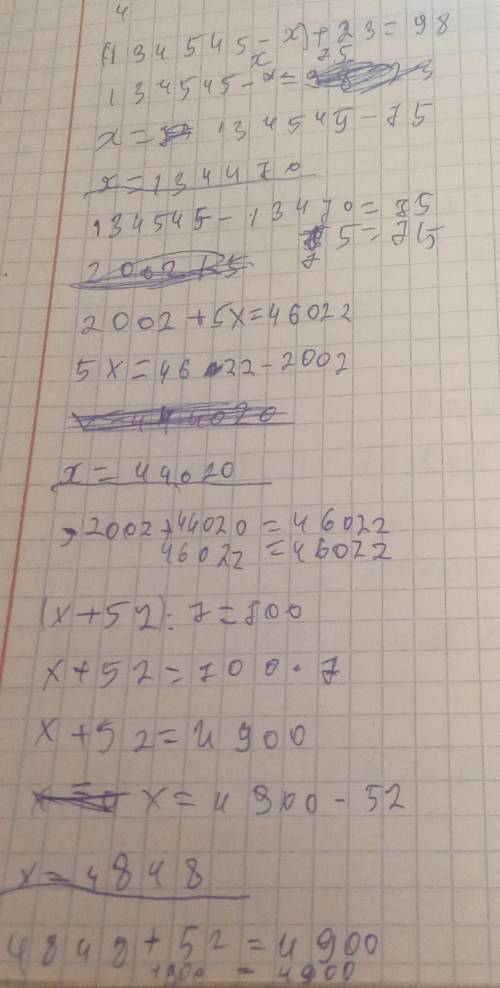 4
(134545-x)+23=98
134545-x=75
x=134545-75
x=134470
134545-13470=75
75=75
2002+5x=46022
5x=46022-2002
x=44020
2002+44020=46022
46022=46022
(x+52):7=700
x+52=700·7
x+52=4900
x=4900-52
x=4848
4848+52=4900
4900=4900